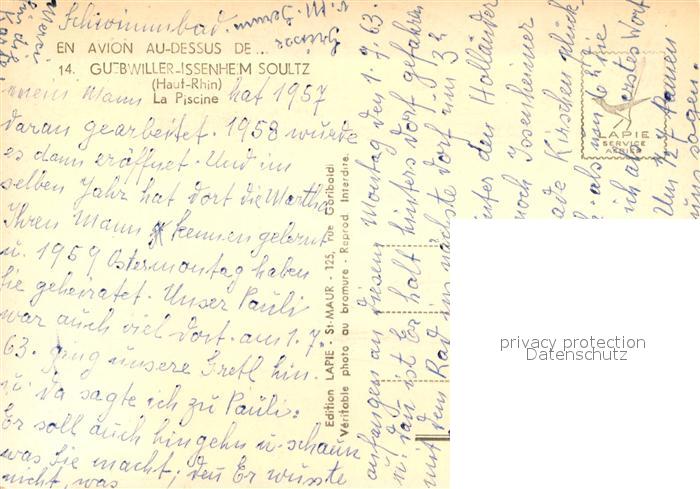 Schwimmbad.
EN AVION AU-DESSUS DE...
14. GUEBWILLER-ISSENHEIM SOULTZ
(Haut-Rhin)
La Piscine
mein Mann hat 1957
daran gearbeitet. 1958 wurde
es dann eröffnet. Und im
selben Jahr hat dort die Martha
Ihren Mann kennen gelernt
u. 1959 Ostermontag haben
Sie geheiratet. Unser Pauli
war auch viel dort. am 1.7.
63. ging unsere Gretl hin.
u. da sagte ich zu Pauli:
Er soll auch hingehn u. schaun
was Sie macht; den Er wusste
nicht, was
Edition LAPIE - St-MAUR - 125, rue Garibaldi
Véritable photo au bromure - Reprod. Interdite.
anfangen an diesem Montag den 1.7.63.
u. dan ist Er halt hinters Dorf gefahren
mit dem Rad ins nächste Dorf um 3
den Holländer
noch Issenheimer
Kirschen pflück-
als um 6h die
ich als erstes Wort
Um 12h kamen
uns sagen.
LAPIE
SERVICE
AERIEN
privacy protection
Datenschutz